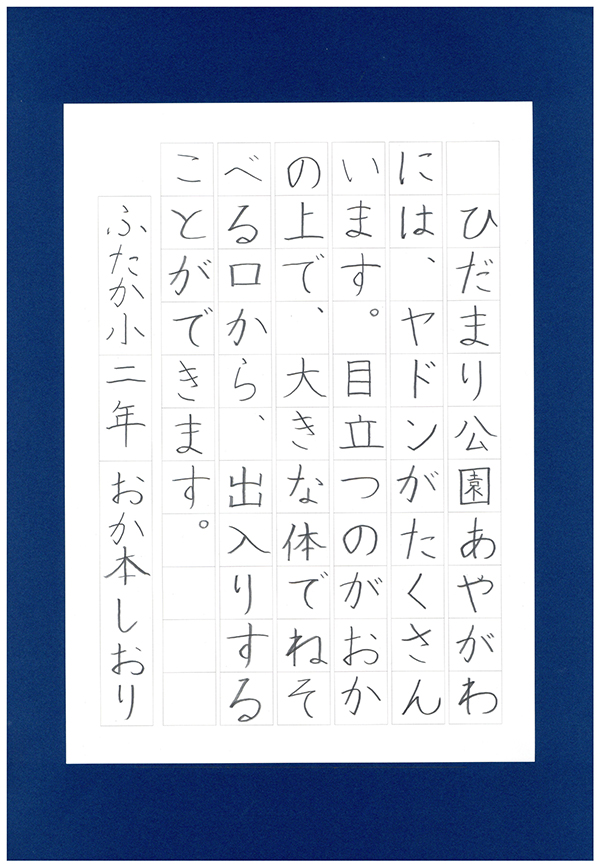 ひだまり公園あやがわ
には、ヤドンがたくさん
います。目立つのがおか
の上で、大きな体でねそ
べる口から、出入りする
ことができます。
ふたか小 二年 おか本しおり